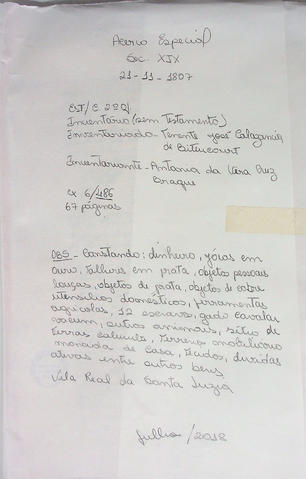 Acervo Especial
Séc. XIX
21-11-1807
Est/C 28Q/
Inventário (sem Testamento)
Inventariado - Tenente José Calagancia
de Bitencourt
Inventariante - Antonia da Vera Cruz
Braque
cx 6/486
67 páginas
OBS - Constando: dinheiro, jóias em
ouro, talheres em prata, objetos pessoais
louças, objetos de prata, objetos de cobre
utensílios domésticos, ferramentas
agrícolas, 12 escravos, gado cavalar
vacum, outros animais, sítio de
terras, terreno
morada de casa, dívidas
ativas entre outros bens
Vila Real da Santa Luzia
Julho/2018